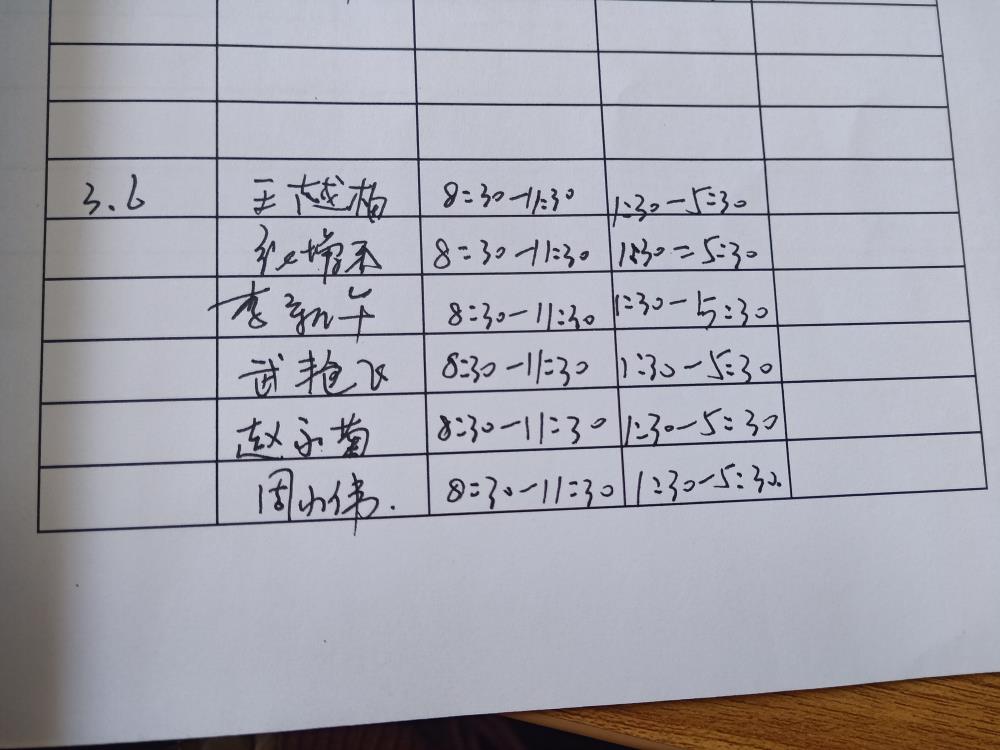 3.6 王越楠 8:30-11:30 1:30-5:30
8:30-11:30 1:30-5:30
李 8:30-11:30 1:30-5:30
武艳飞 8:30-11:30 1:30-5:30
赵永菊 8:30-11:30 1:30-5:30
周小伟. 8:30-11:30 1:30-5:30